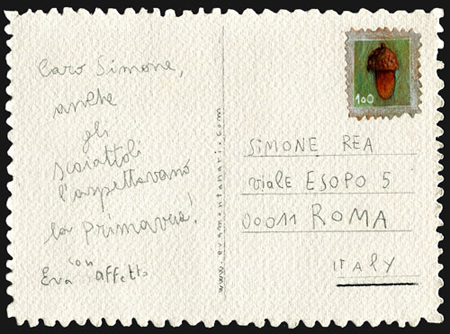 Caro Simone,
anche
gli
scoiattoli
l'aspettavano
la primavera!
con
Eva affetto
www.evamontanari.com
100
SIMONE REA
viale ESOPO 5
00011 ROMA
ITALY